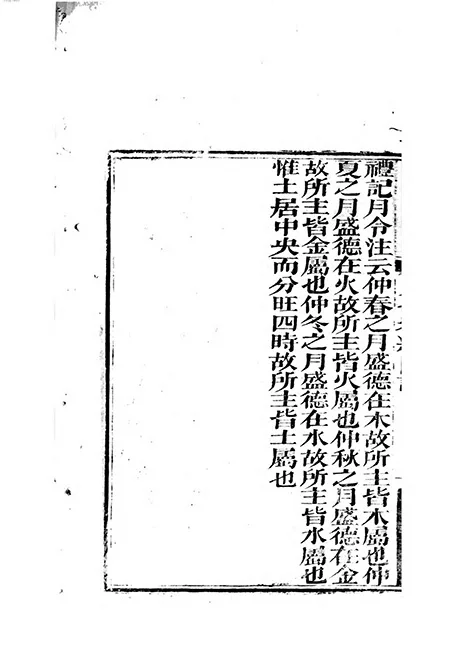 禮記月令注云仲春之月盛德在木故所主皆木屬也仲
夏之月盛德在火故所主皆火屬也仲秋之月盛德在金
故所主皆金屬也仲冬之月盛德在水故所主皆水屬也
惟土居中央而分旺四時故所主皆土屬也